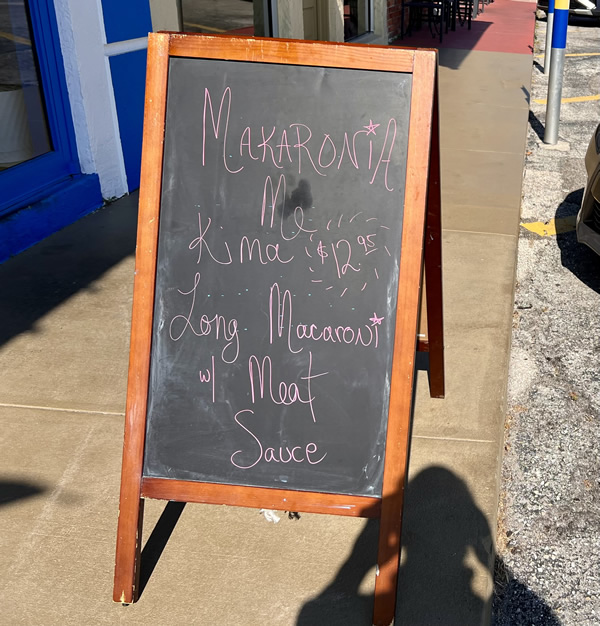 MAKARONIA
Me
Kima $12.95
Long Macaroni
w/ Meat
Sauce